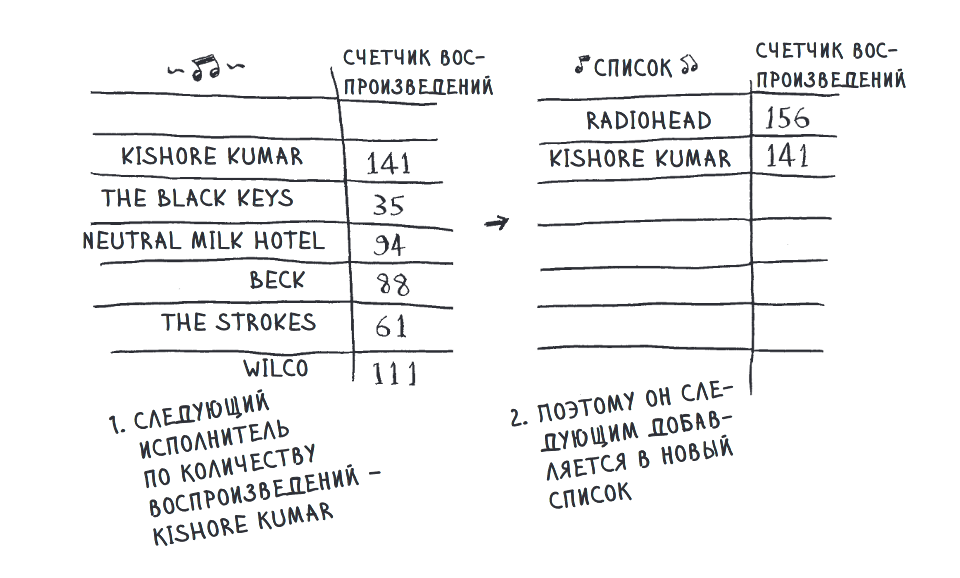 СЧЕТЧИК ВОС-
ПРОИЗВЕДЕНИЙ
KISHORE KUMAR 141
THE BLACK KEYS 35
NEUTRAL MILK HOTEL 94
BECK 88
THE STROKES 61
WILCO 111
1. СЛЕДУЮЩИЙ
ИСПОЛНИТЕЛЬ
ПО КОЛИЧЕСТВУ
ВОСПРОИЗВЕДЕНИЙ –
KISHORE KUMAR
СПИСОК
СЧЕТЧИК ВОС-
ПРОИЗВЕДЕНИЙ
RADIOHEAD 156
KISHORE KUMAR 141
2. ПОЭТОМУ ОН СЛЕ-
ДУЮЩИМ ДОБАВ-
ЛЯЕТСЯ В НОВЫЙ
СПИСОК